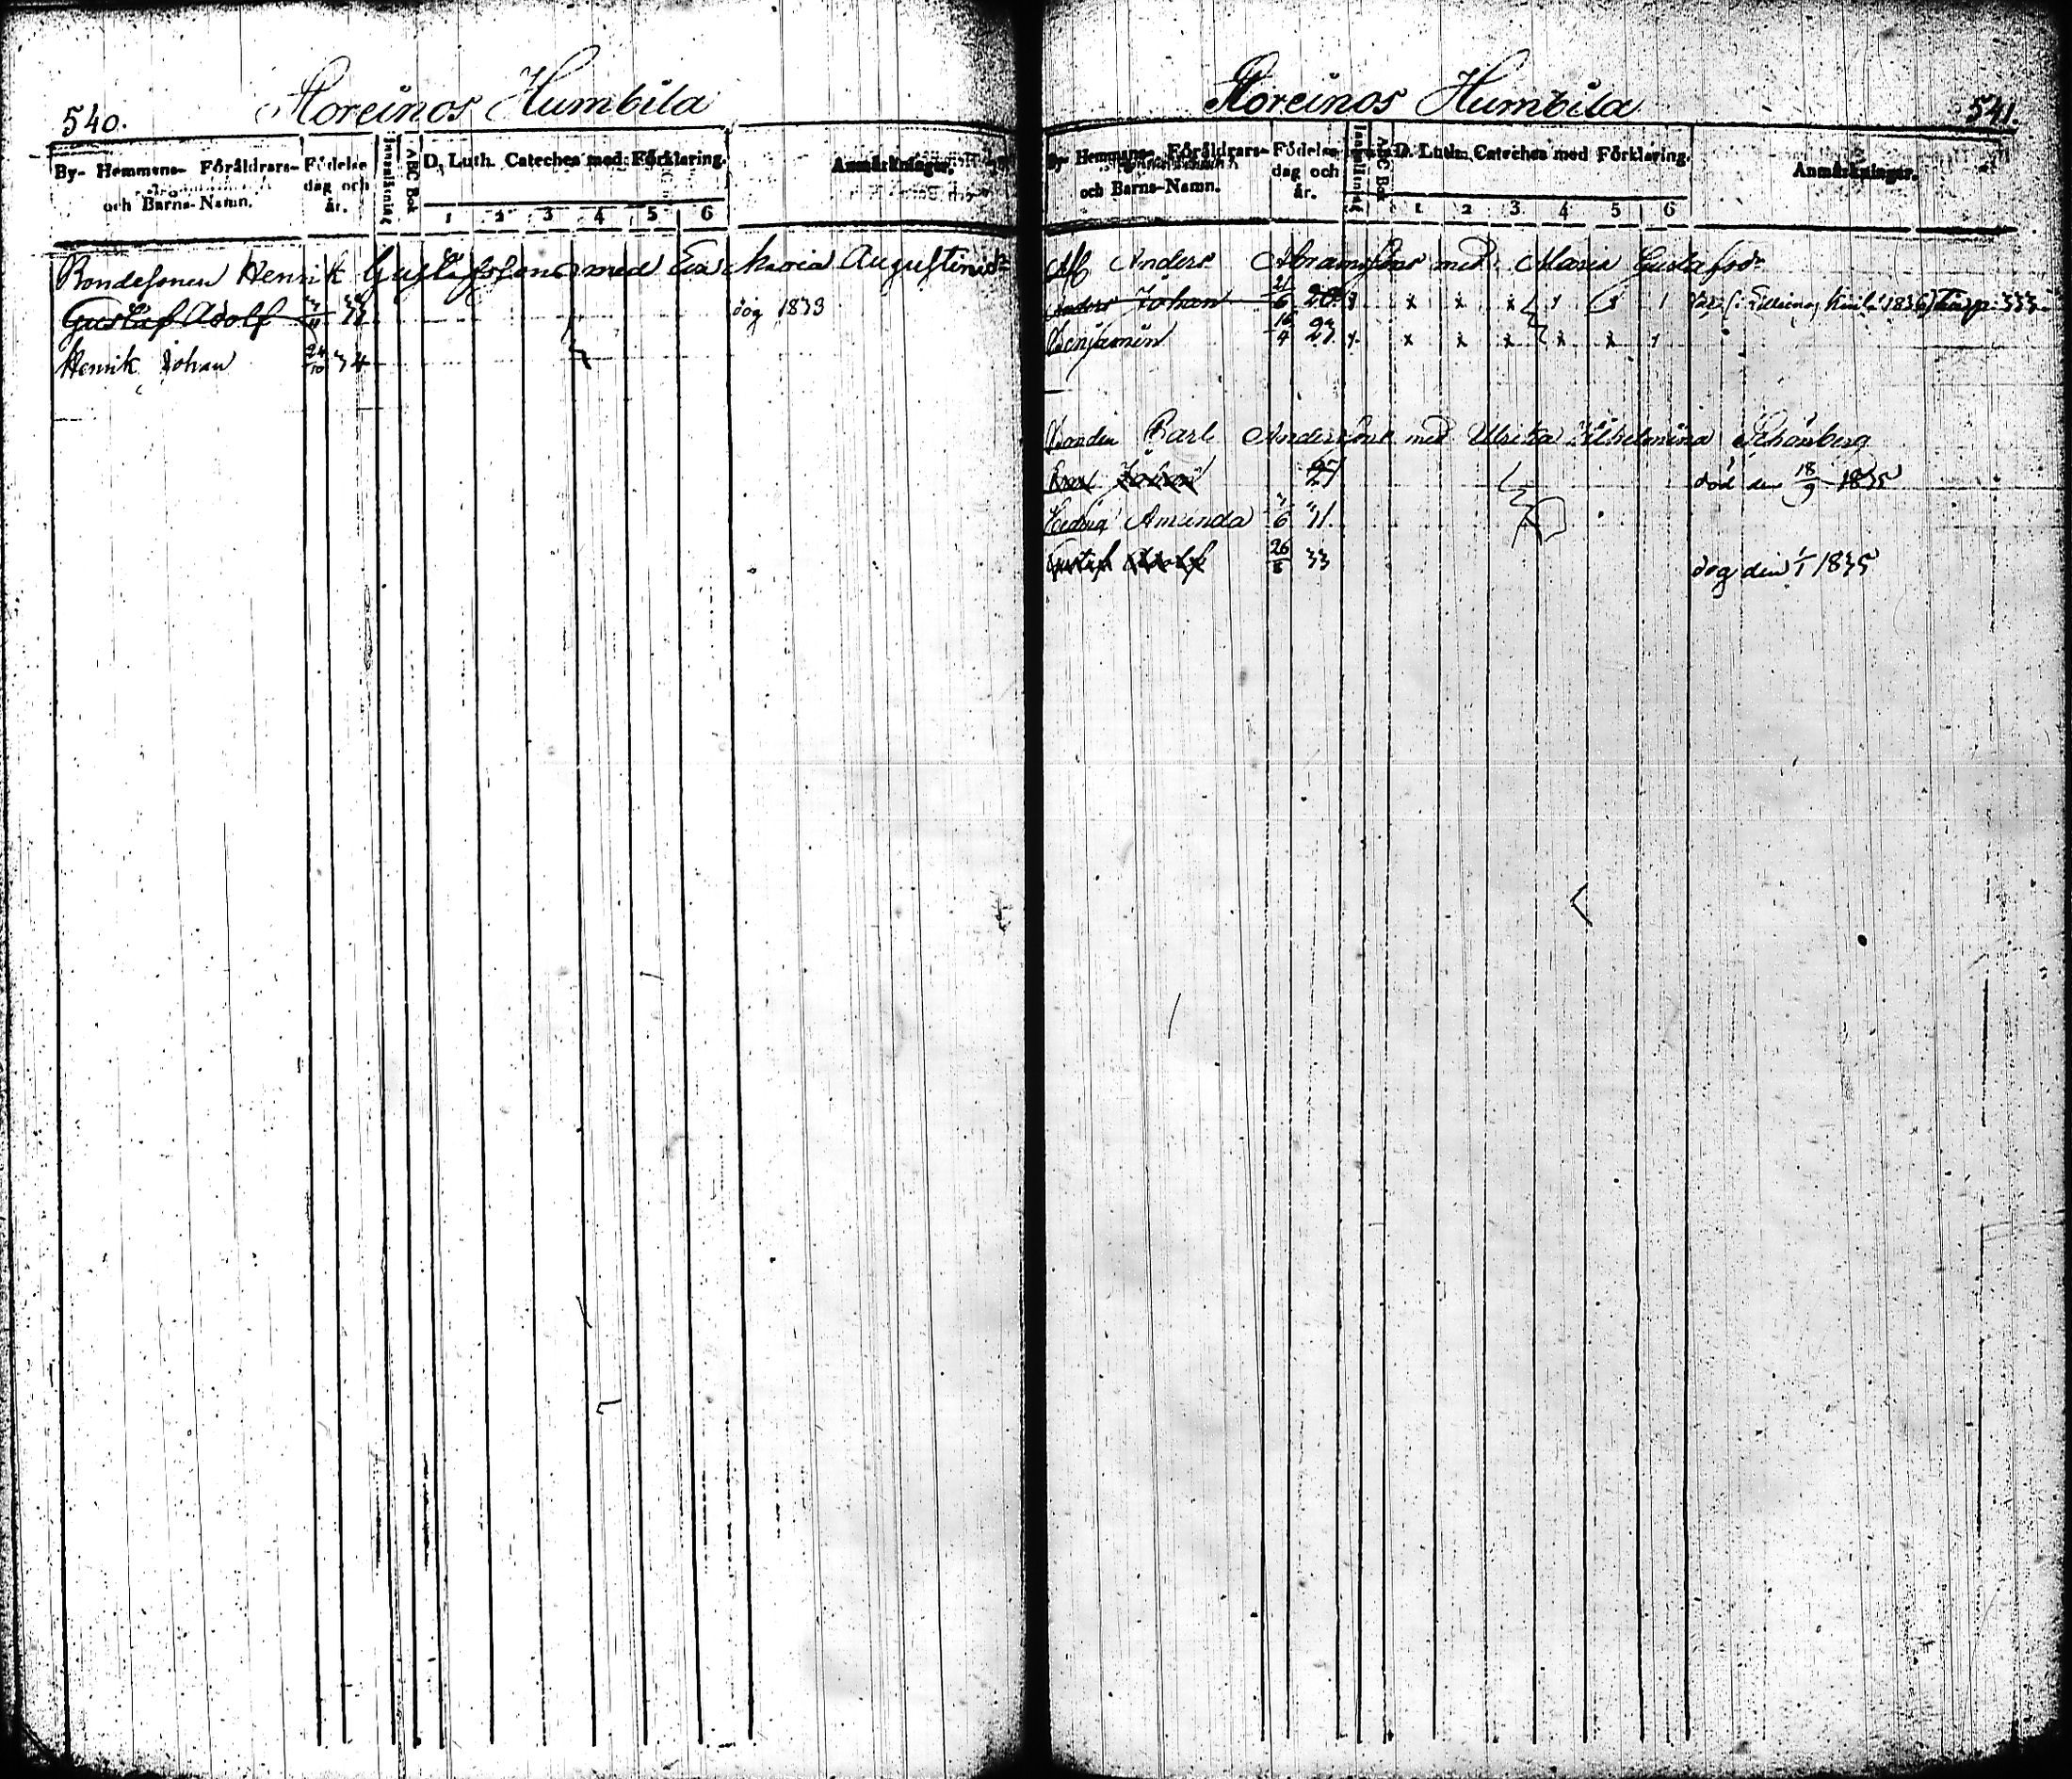 540.
Storeinos Humbila
By- Hemmens- Föräldrars- och Barns-Namn.
Födelse dag och år.
Innanläsning
ABC Bok
D. Luth. Cateches med Förklaring.
1 2 3 4 5 6
Anmärkningar.
Bondesonen Henrik Gustafssons med Eva Maria Augustinid:r
Gustaf Adolf 33 dog 1833
Henrik Johan 24/10 34
Storeinos Humbila
541.
By- Hemmens- Föräldrars- och Barns-Namn.
Födelse dag och år.
Innanläsning
ABC Bok
D. Luth. Cateches med Förklaring.
1 2 3 4 5 6
Anmärkningar.
Anders Abramssons med Maria Gustafsd:r
Anders Johan 21/6 20 x x x 1836 333
Benjamin 16/4 23 x x x x x x
Bonden Carl Anderssons med Ulrika Wilhelmina Schönberg
Johan 27 död den 18/9 1835
Hedvig Amanda 31
Gustaf Adolf 26/8 33 dog den 1/1 1835